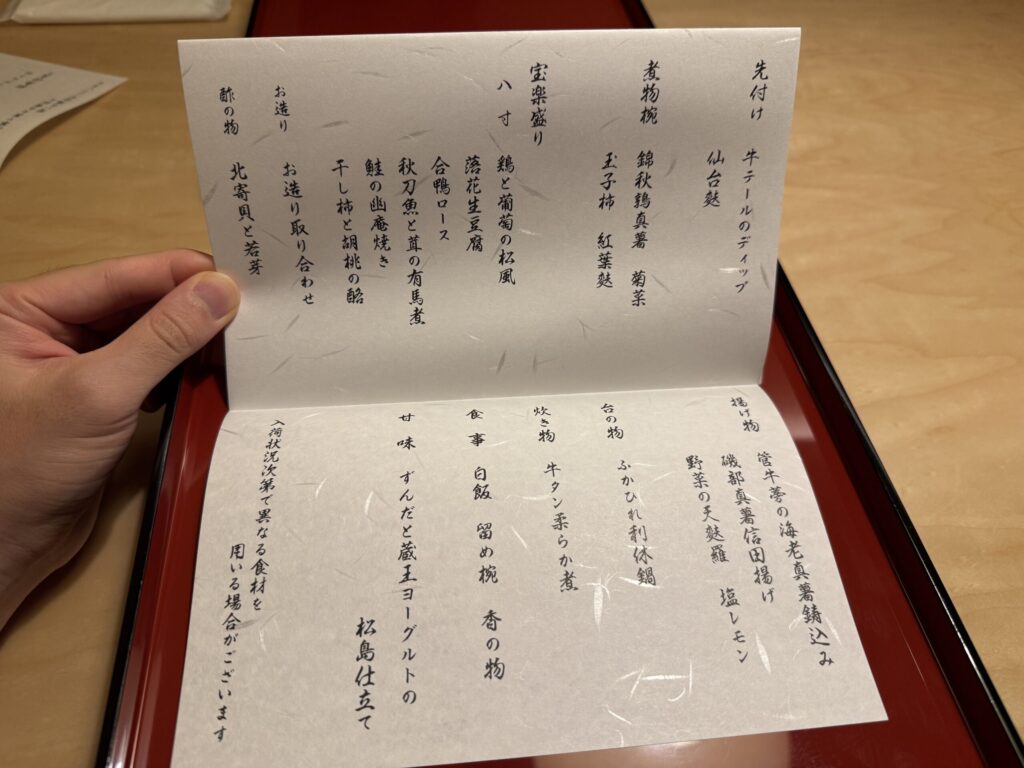 先付け
牛テールのディップ
仙台麩
煮物椀
錦秋鶉真薯　菊菜
玉子柿　紅葉麩
宝楽盛り
八寸
鶏と葡萄の松風
落花生豆腐
合鴨ロース
秋刀魚と茸の有馬煮
鮭の幽庵焼き
干し柿と胡桃の酪
お造り
お造り取り合わせ
酢の物
北寄貝と若芽
揚げ物
管牛蒡の海老真薯鋳込み
磯部真薯信田揚げ
野菜の天麩羅　塩レモン
台の物
ふかひれ利休鍋
炊き物
牛タン柔らか煮
食事
白飯　留め椀　香の物
甘味
ずんだと蔵王ヨーグルトの
松島仕立て
入荷状況次第で異なる食材を
用いる場合がございます